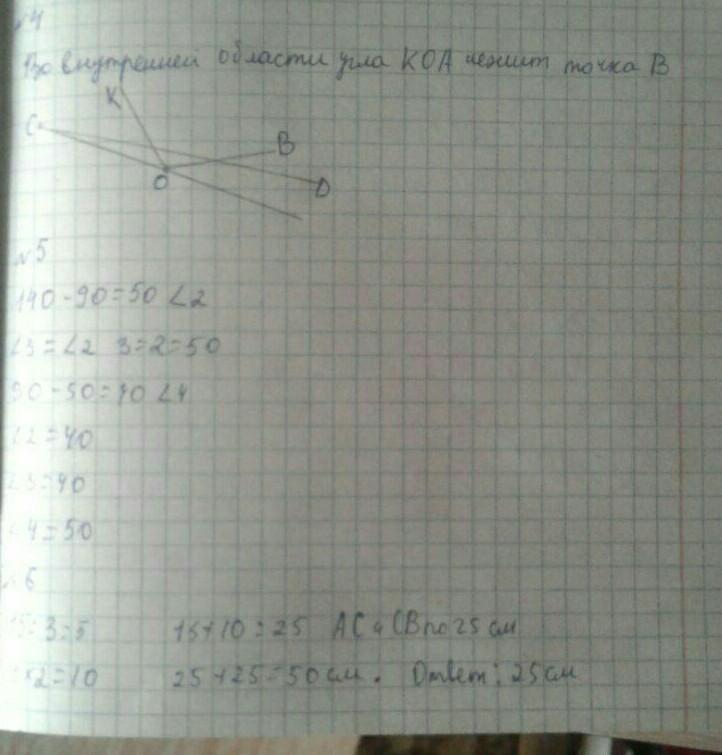 №4
Во внутренней области угла КОА лежит точка В
К
С
В
О
D
№5
140-90=50 ∠2
∠3=∠2 3=2=50
90-50=40 ∠4
∠2=40
∠3=40
∠4=50
№6
15:3=5 15+10=25 АС и СВ по 25 см
5×2=10 25+25=50 см. Ответ: 25 см